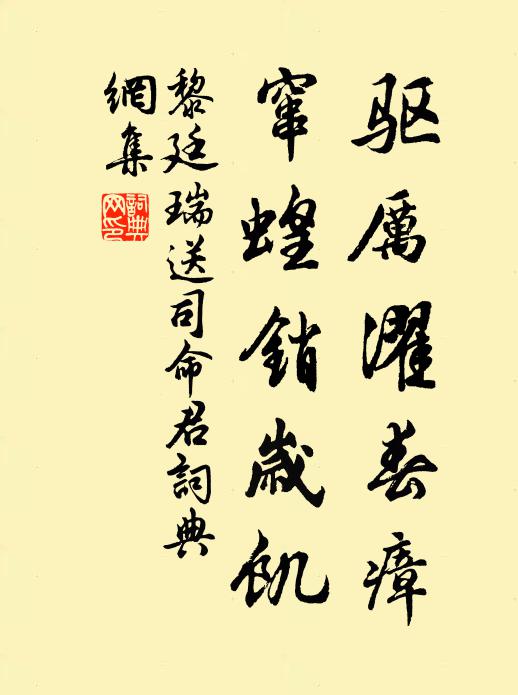 驱厲濯春瘴
窜蝗銷歳飢
黎廷瑞送司命君詞典
網集
詞典
网印